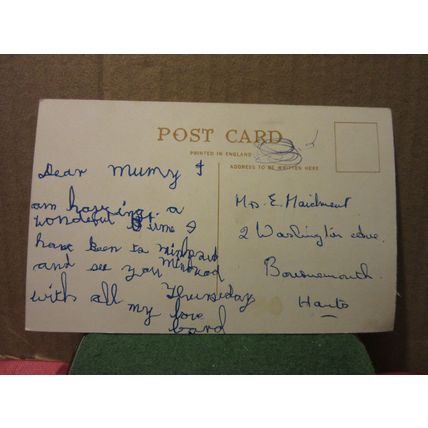 POST CARD
PRINTED IN ENGLAND
ADDRESS TO BE WRITTEN HERE
Dear Mumy I
am having a
wonderful time I
have been to
and see you
Thursday
with all my love
Mrs. E. Maidment
2 Washington Ave.
Bournemouth.
Hants